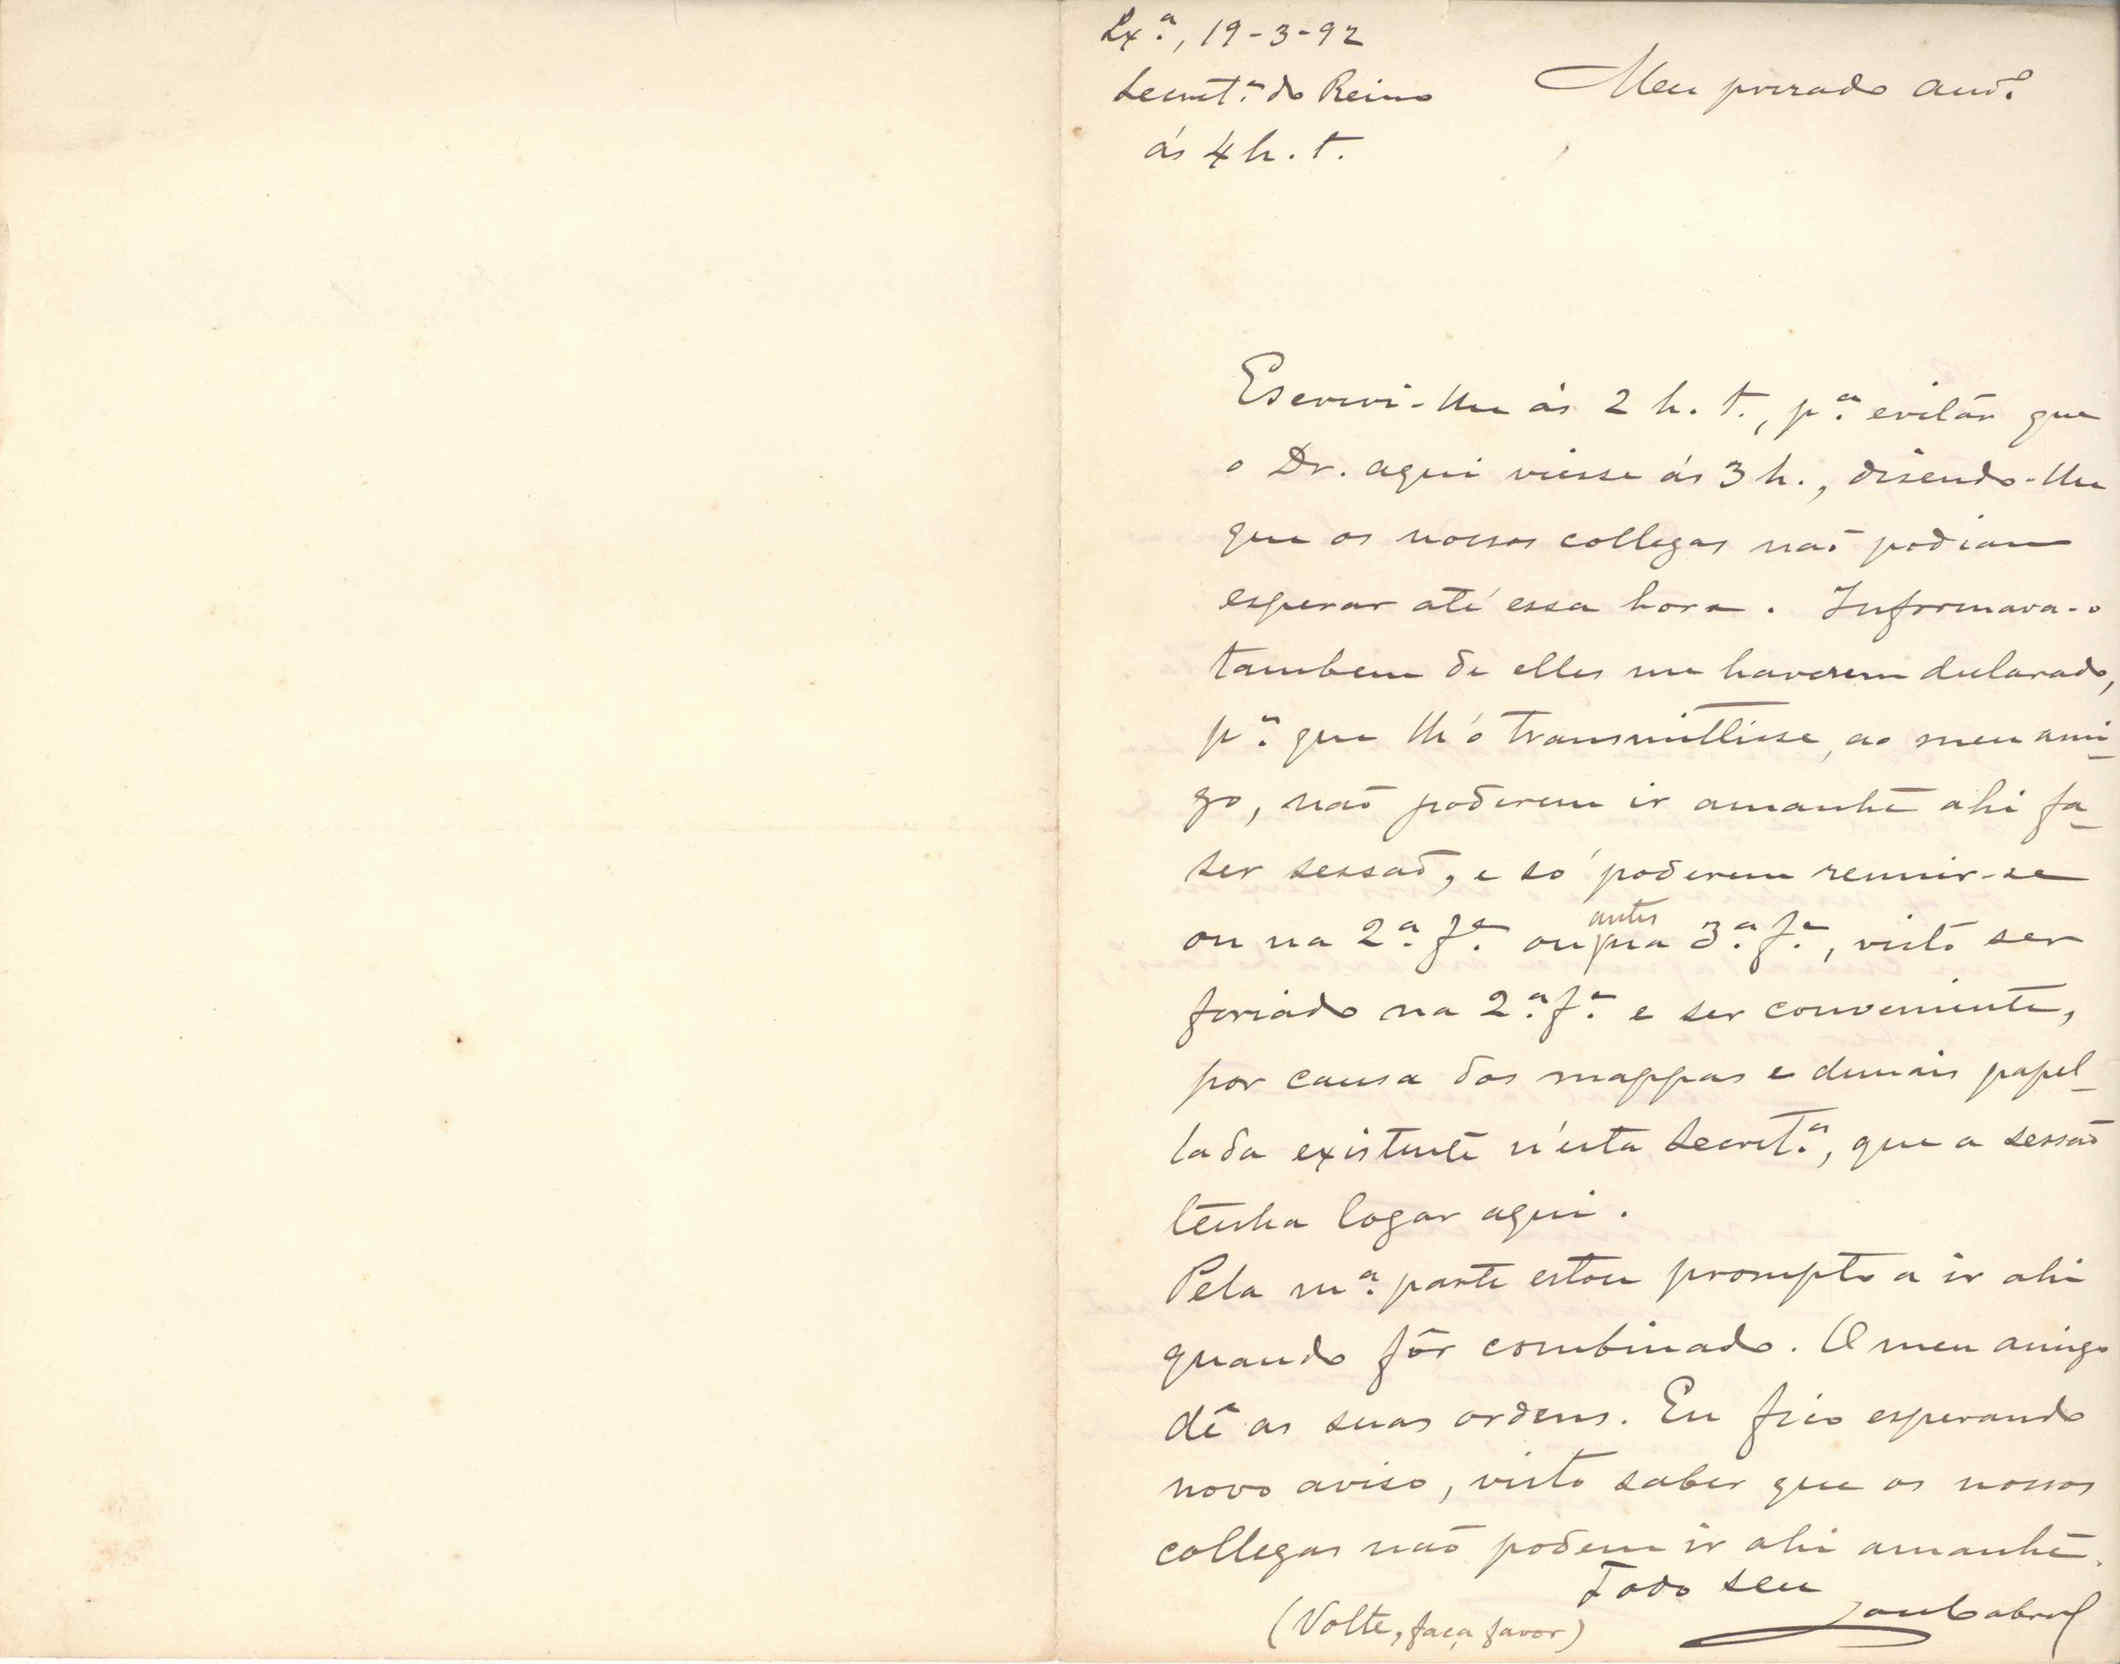 Lx.ª, 19-3-92
Secret.ª do Reino
ás 4 h. t.
Meu presado am.º
Escrevi-lhe ás 2 h. t., p.ª evitar que
o Dr. aqui viesse ás 3 h., disendo-lhe
que os nossos collegas naõ podiam
esperar até essa hora. Informava-o
tambem de elles me haverem declarado,
p.ª que lh'o transmittisse, ao meu ami-
go, naõ poderem ir amanhã ahi fa-
ser sessaõ, e só poderem reunir-se
ou na 2.ª f.ª ou antes na 3.ª f.ª, visto ser
feriado na 2.ª f.ª e ser conveniente,
por causa dos mappas e demais papel-
lada existente n'esta Secret.ª, que a sessaõ
tenha logar aqui.
Pela m.ª parte estou prompto a ir ahi
quando fôr combinado. O meu amigo
dê as suas ordens. Eu fico esperando
novo aviso, visto saber que os nossos
collegas naõ podem ir ahi amanhã.
Todo seu
(Volte, faça favor)
Cabral